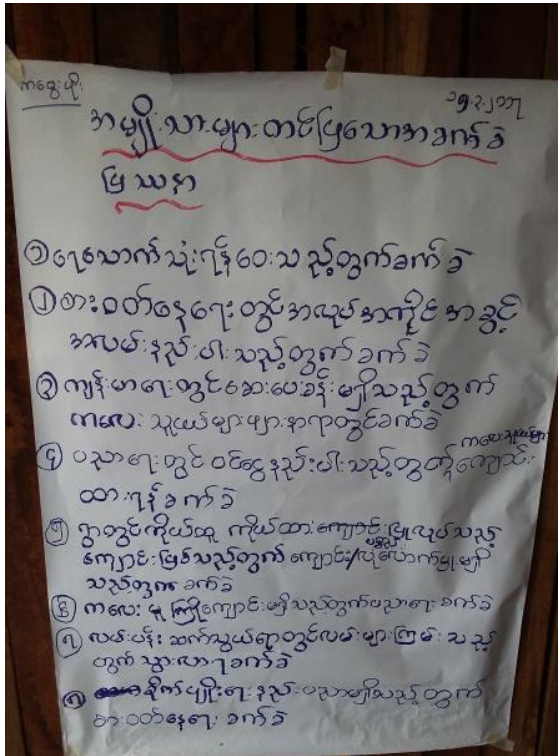 ကဒွေးပိုး
၁၅.၃.၂၀၁၇
အမျိုးသားများတင်ပြသောအခက်ခဲ
ပြဿနာ
၁ ရေသောက်သုံးရန်ဝေးသည့်တွက်ခက်ခဲ
၂ စားဝတ်နေရေးတွင်အလုပ်အကိုင်အခွင့်
အလမ်းနည်းပါးသည့်တွက်ခက်ခဲ
၃ ကျန်းမာရေးတွင်ဆေးပေးခန်းမရှိသည့်တွက်
ကလေးသူငယ်များဖျားနာရာတွင်ခက်ခဲ
၄ ပညာရေးတွင်ဝင်ငွေနည်းပါးသည့်တွက်ကလေးသူငယ်များကျောင်း
ထားရန်ခက်ခဲ
၅ ရွာတွင်ကိုယ်ထူကိုယ်ထကျောင်းပြုလုပ်သည့်
ကျောင်းဖြစ်သည့်တွက်ကျောင်း/လုံလောက်မှုမရှိ
သည့်တွက်ခက်ခဲ
၆ ကလေးမူကြိုကျောင်းမရှိသည့်တွက်ပညာရေးခက်ခဲ
၇ လမ်းပန်းဆက်သွယ်ရာတွင်လမ်းများကြမ်းသည့်
တွက်သွားလာရခက်ခဲ
၈ စိုက်ပျိုးရေးနည်းပညာမရှိသည့်တွက်
စားဝတ်နေရေးခက်ခဲ